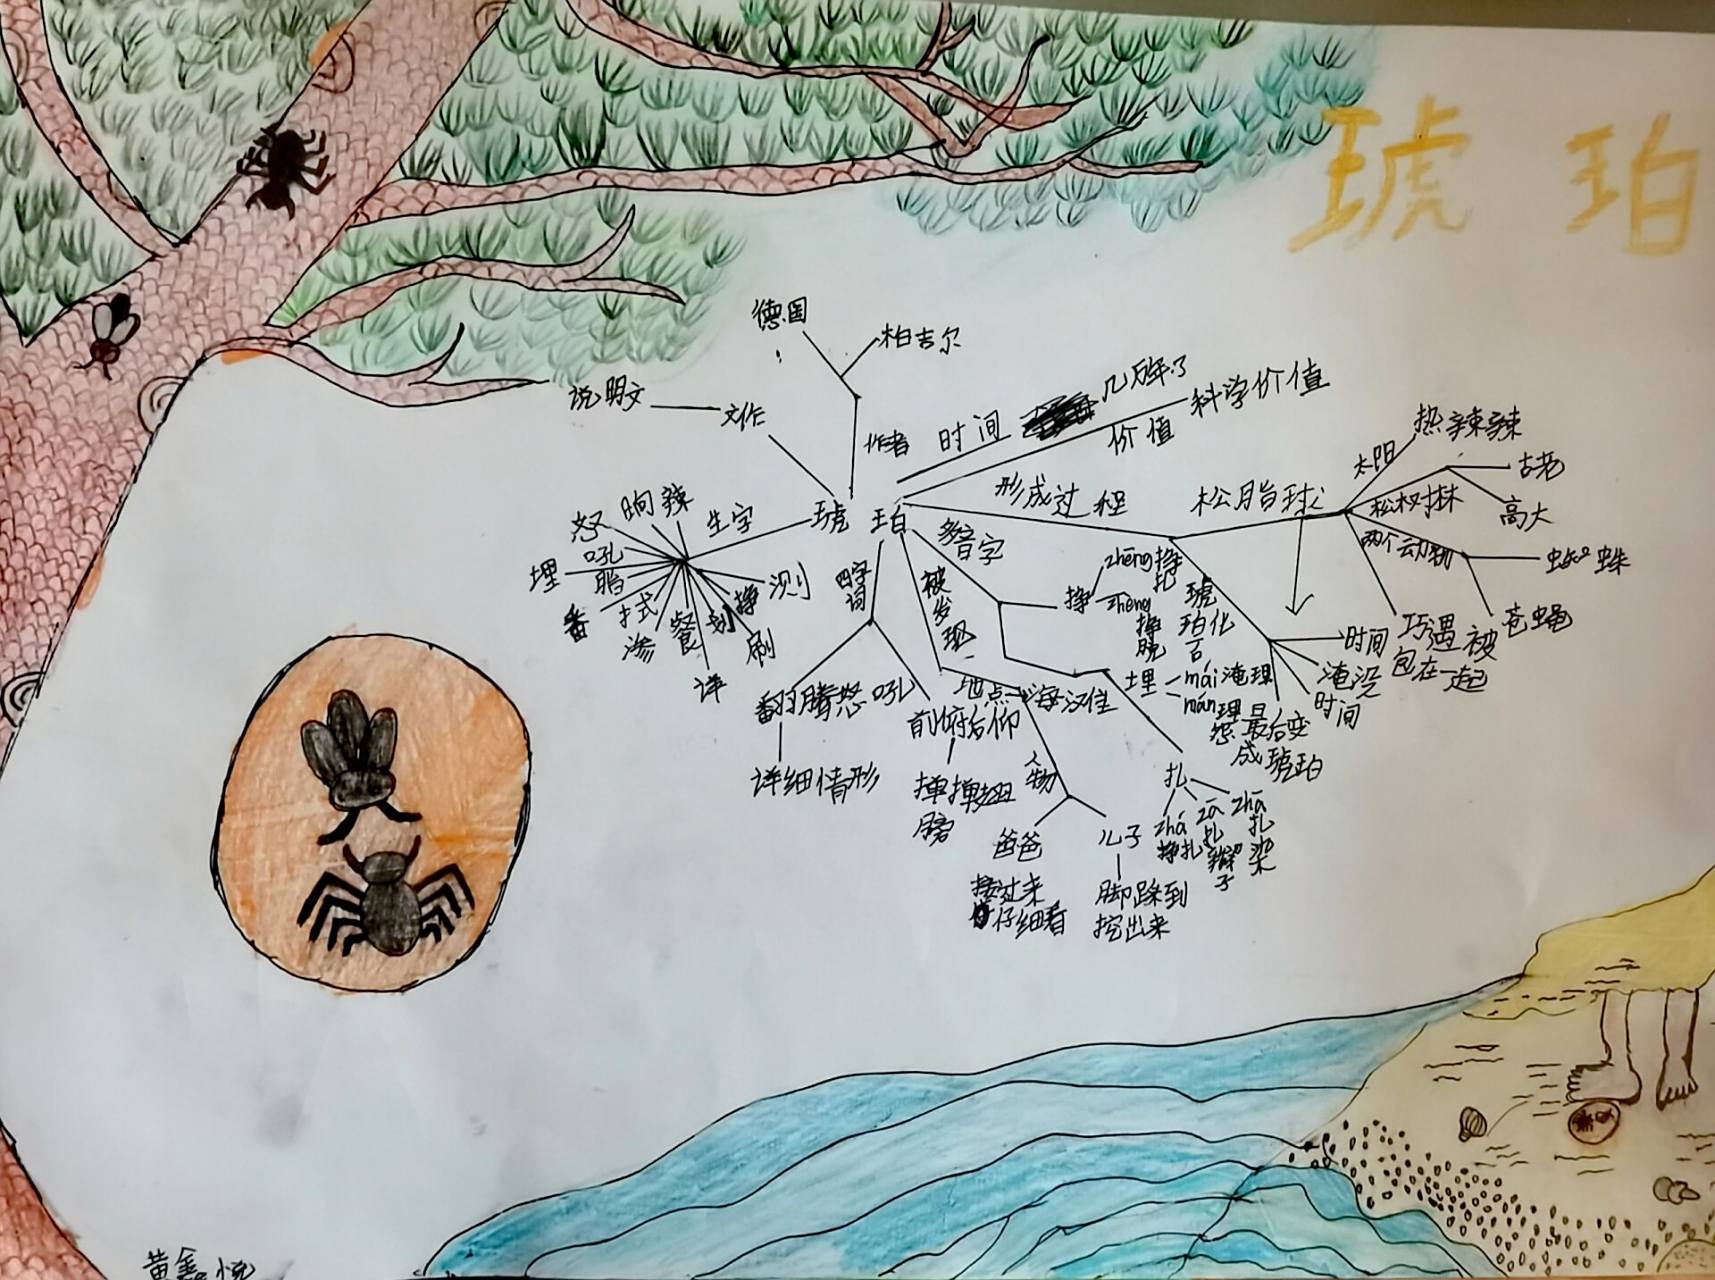 琥珀
德国
柏吉尔
作者
说明文
文体
时间
几万年了
价值
科学价值
琥珀
生字
晌
辣
怒
吼
埋
脂
番
拭
渗
餐
划
挣
测
刷
详
四字词
翻腾怒吼
详细情形
前俯后仰
掸掸翅膀
被发现
地点
海汉住
人物
爸爸
接过来
仔细看
儿子
脚踩到
挖出来
多音字
挣
zhēng 挣扎
zhèng 挣脱
埋
mái 淹埋
mán 埋怨
扎
zhá 挣扎
zā 扎辫子
zhā 扎染
形成过程
松脂球
太阳
热辣辣
松树林
古老
高大
两个动物
蜘蛛
苍蝇
巧遇被
包在一起
琥珀化石
时间
淹没
时间
最后变
成琥珀
黄鑫悦